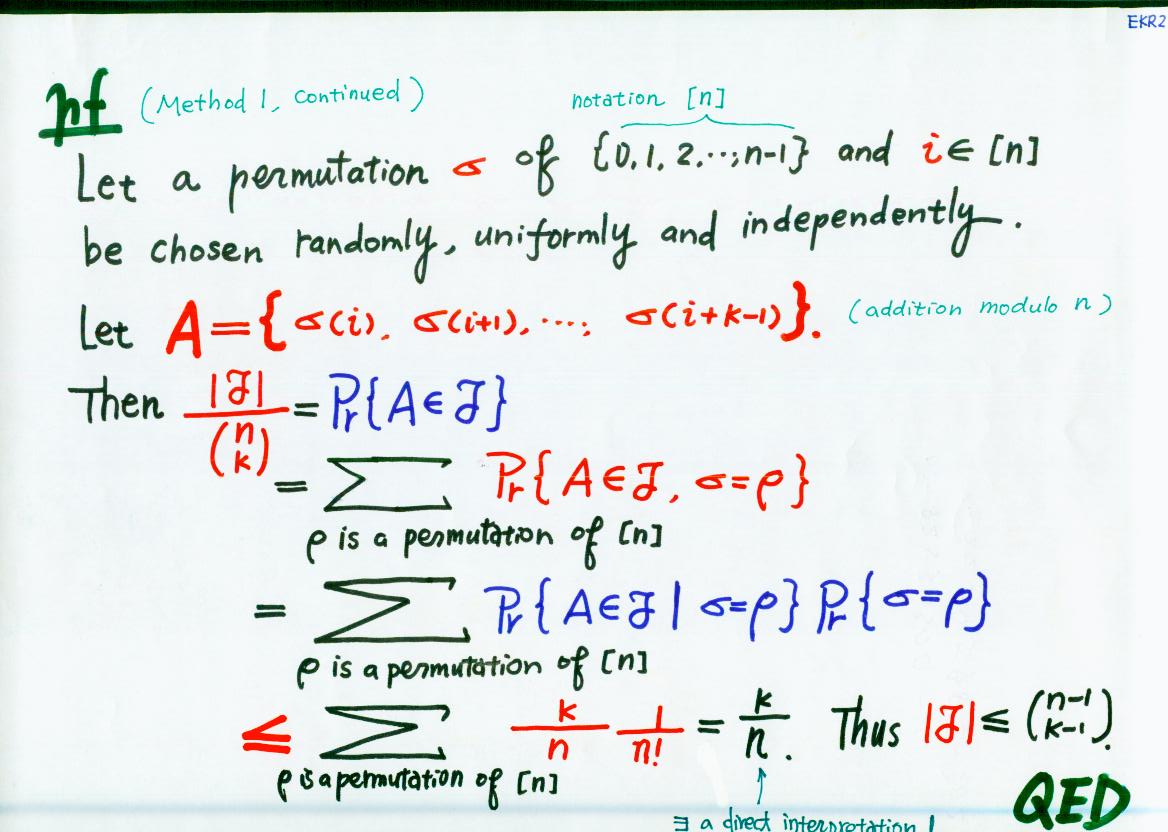 EKR2
pf (Method 1, continued) notation [n]
Let a permutation σ of {0, 1, 2, ..., n-1} and i ∈ [n]
be chosen randomly, uniformly and independently.
Let A = { σ(i), σ(i+1), ..., σ(i+k-1) }. (addition modulo n)
Then |ℱ| / (n k) = Pr{A ∈ ℱ}
= ∑ Pr{A ∈ ℱ, σ=ρ}
ρ is a permutation of [n]
= ∑ Pr{A ∈ ℱ | σ=ρ} Pr{σ=ρ}
ρ is a permutation of [n]
≤ ∑ k/n 1/n! = k/n. Thus |ℱ| ≤ (n-1 k-1).
ρ is a permutation of [n]
QED
∃ a direct interpretation !